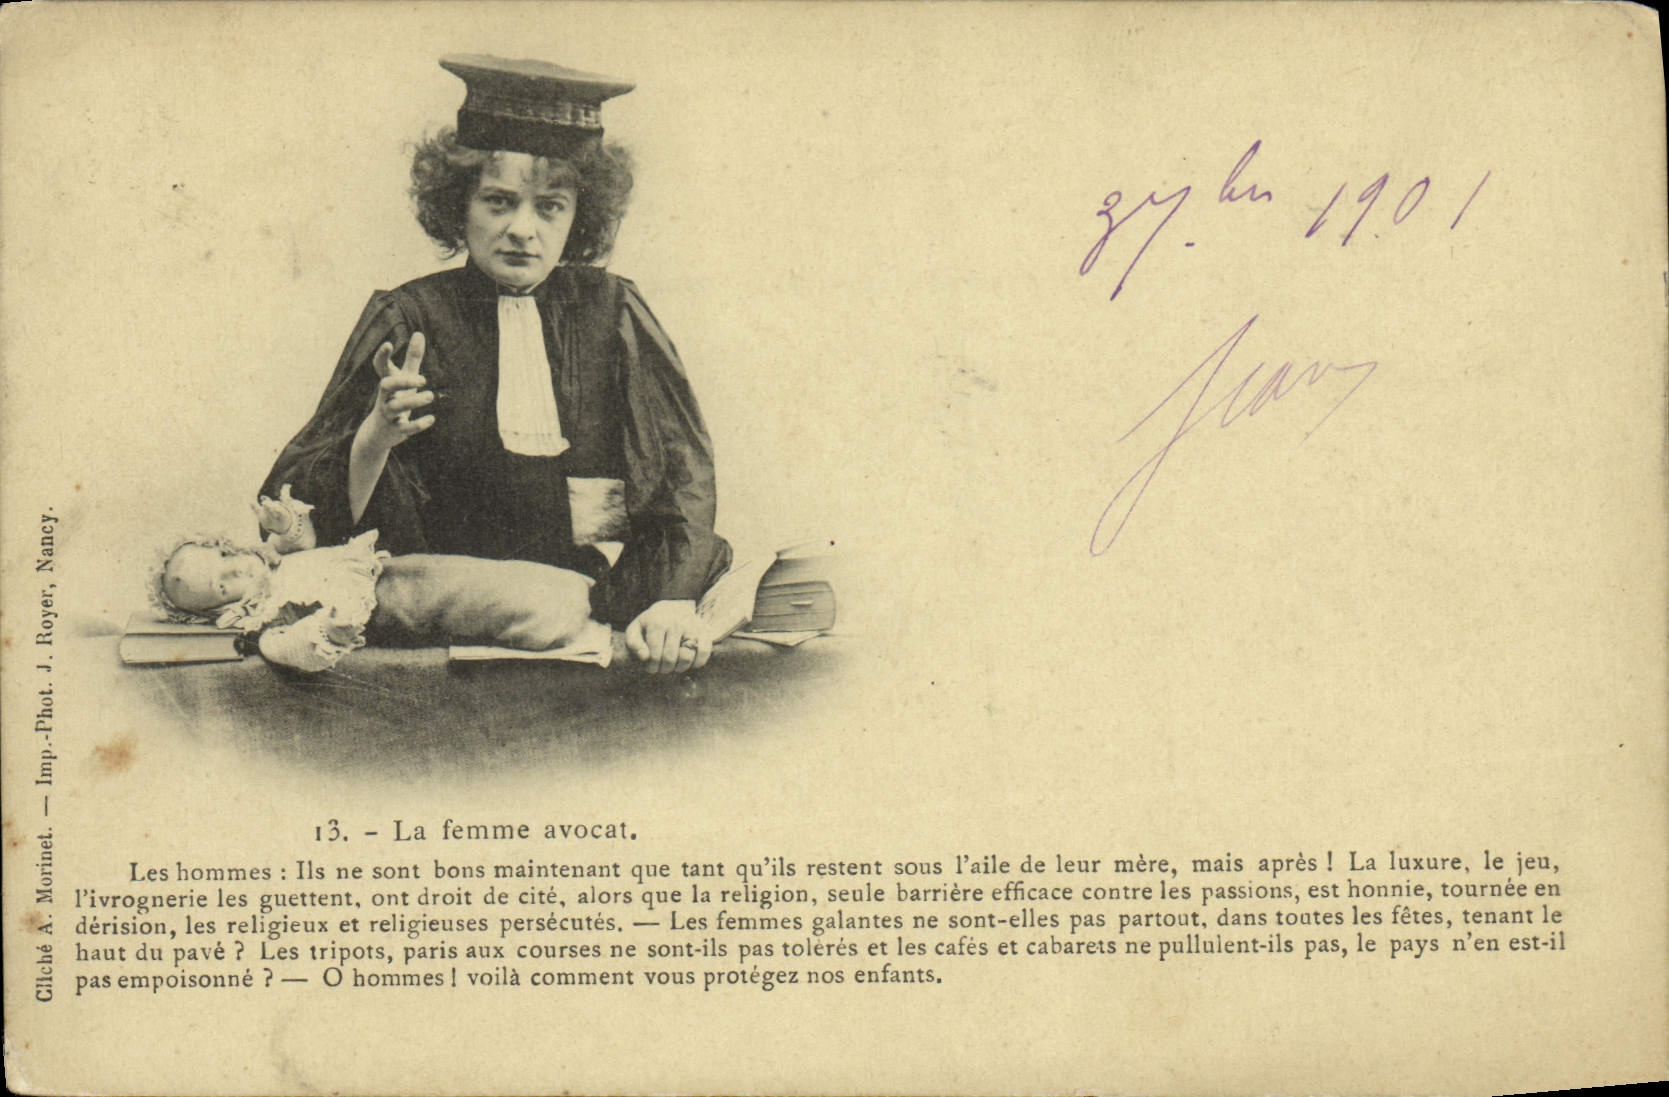 3 7.bre 1901
Jean
13. - La femme avocat.
Les hommes : Ils ne sont bons maintenant que tant qu'ils restent sous l'aile de leur mère, mais après ! La luxure, le jeu,
l'ivrognerie les guettent, ont droit de cité, alors que la religion, seule barrière efficace contre les passions, est honnie, tournée en
dérision, les religieux et religieuses persécutés. — Les femmes galantes ne sont-elles pas partout, dans toutes les fêtes, tenant le
haut du pavé ? Les tripots, paris aux courses ne sont-ils pas tolérés et les cafés et cabarets ne pullulent-ils pas, le pays n'en est-il
pas empoisonné ? — O hommes ! voilà comment vous protégez nos enfants.
Cliché A. Morinet. — Imp.-Phot. J. Royer, Nancy.